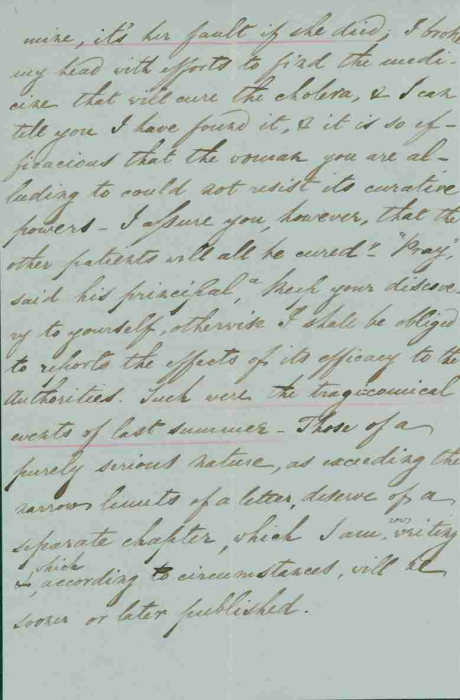 mine, it's her fault if she died, I broke
my head with efforts to find the medi-
cine that will cure the cholera, & I can
tell you I have found it, & it is so ef-
ficacious that the woman you are al-
luding to could not resist its curative
powers - I assure you, however, that the
other patients will all be cured" - "Pray",
said his principal, "Keep your discove-
ry to yourself, otherwise I shall be obliged
to reporte the effects of its efficacy to the
Authorities. Such were the tragicomical
events of last summer - Those of a
purely serious nature, as exceeding the
narrow limits of a letter, deserve of a
separate chapter, which I am now writing
which, according to circumstances, will be
sooner or later published.